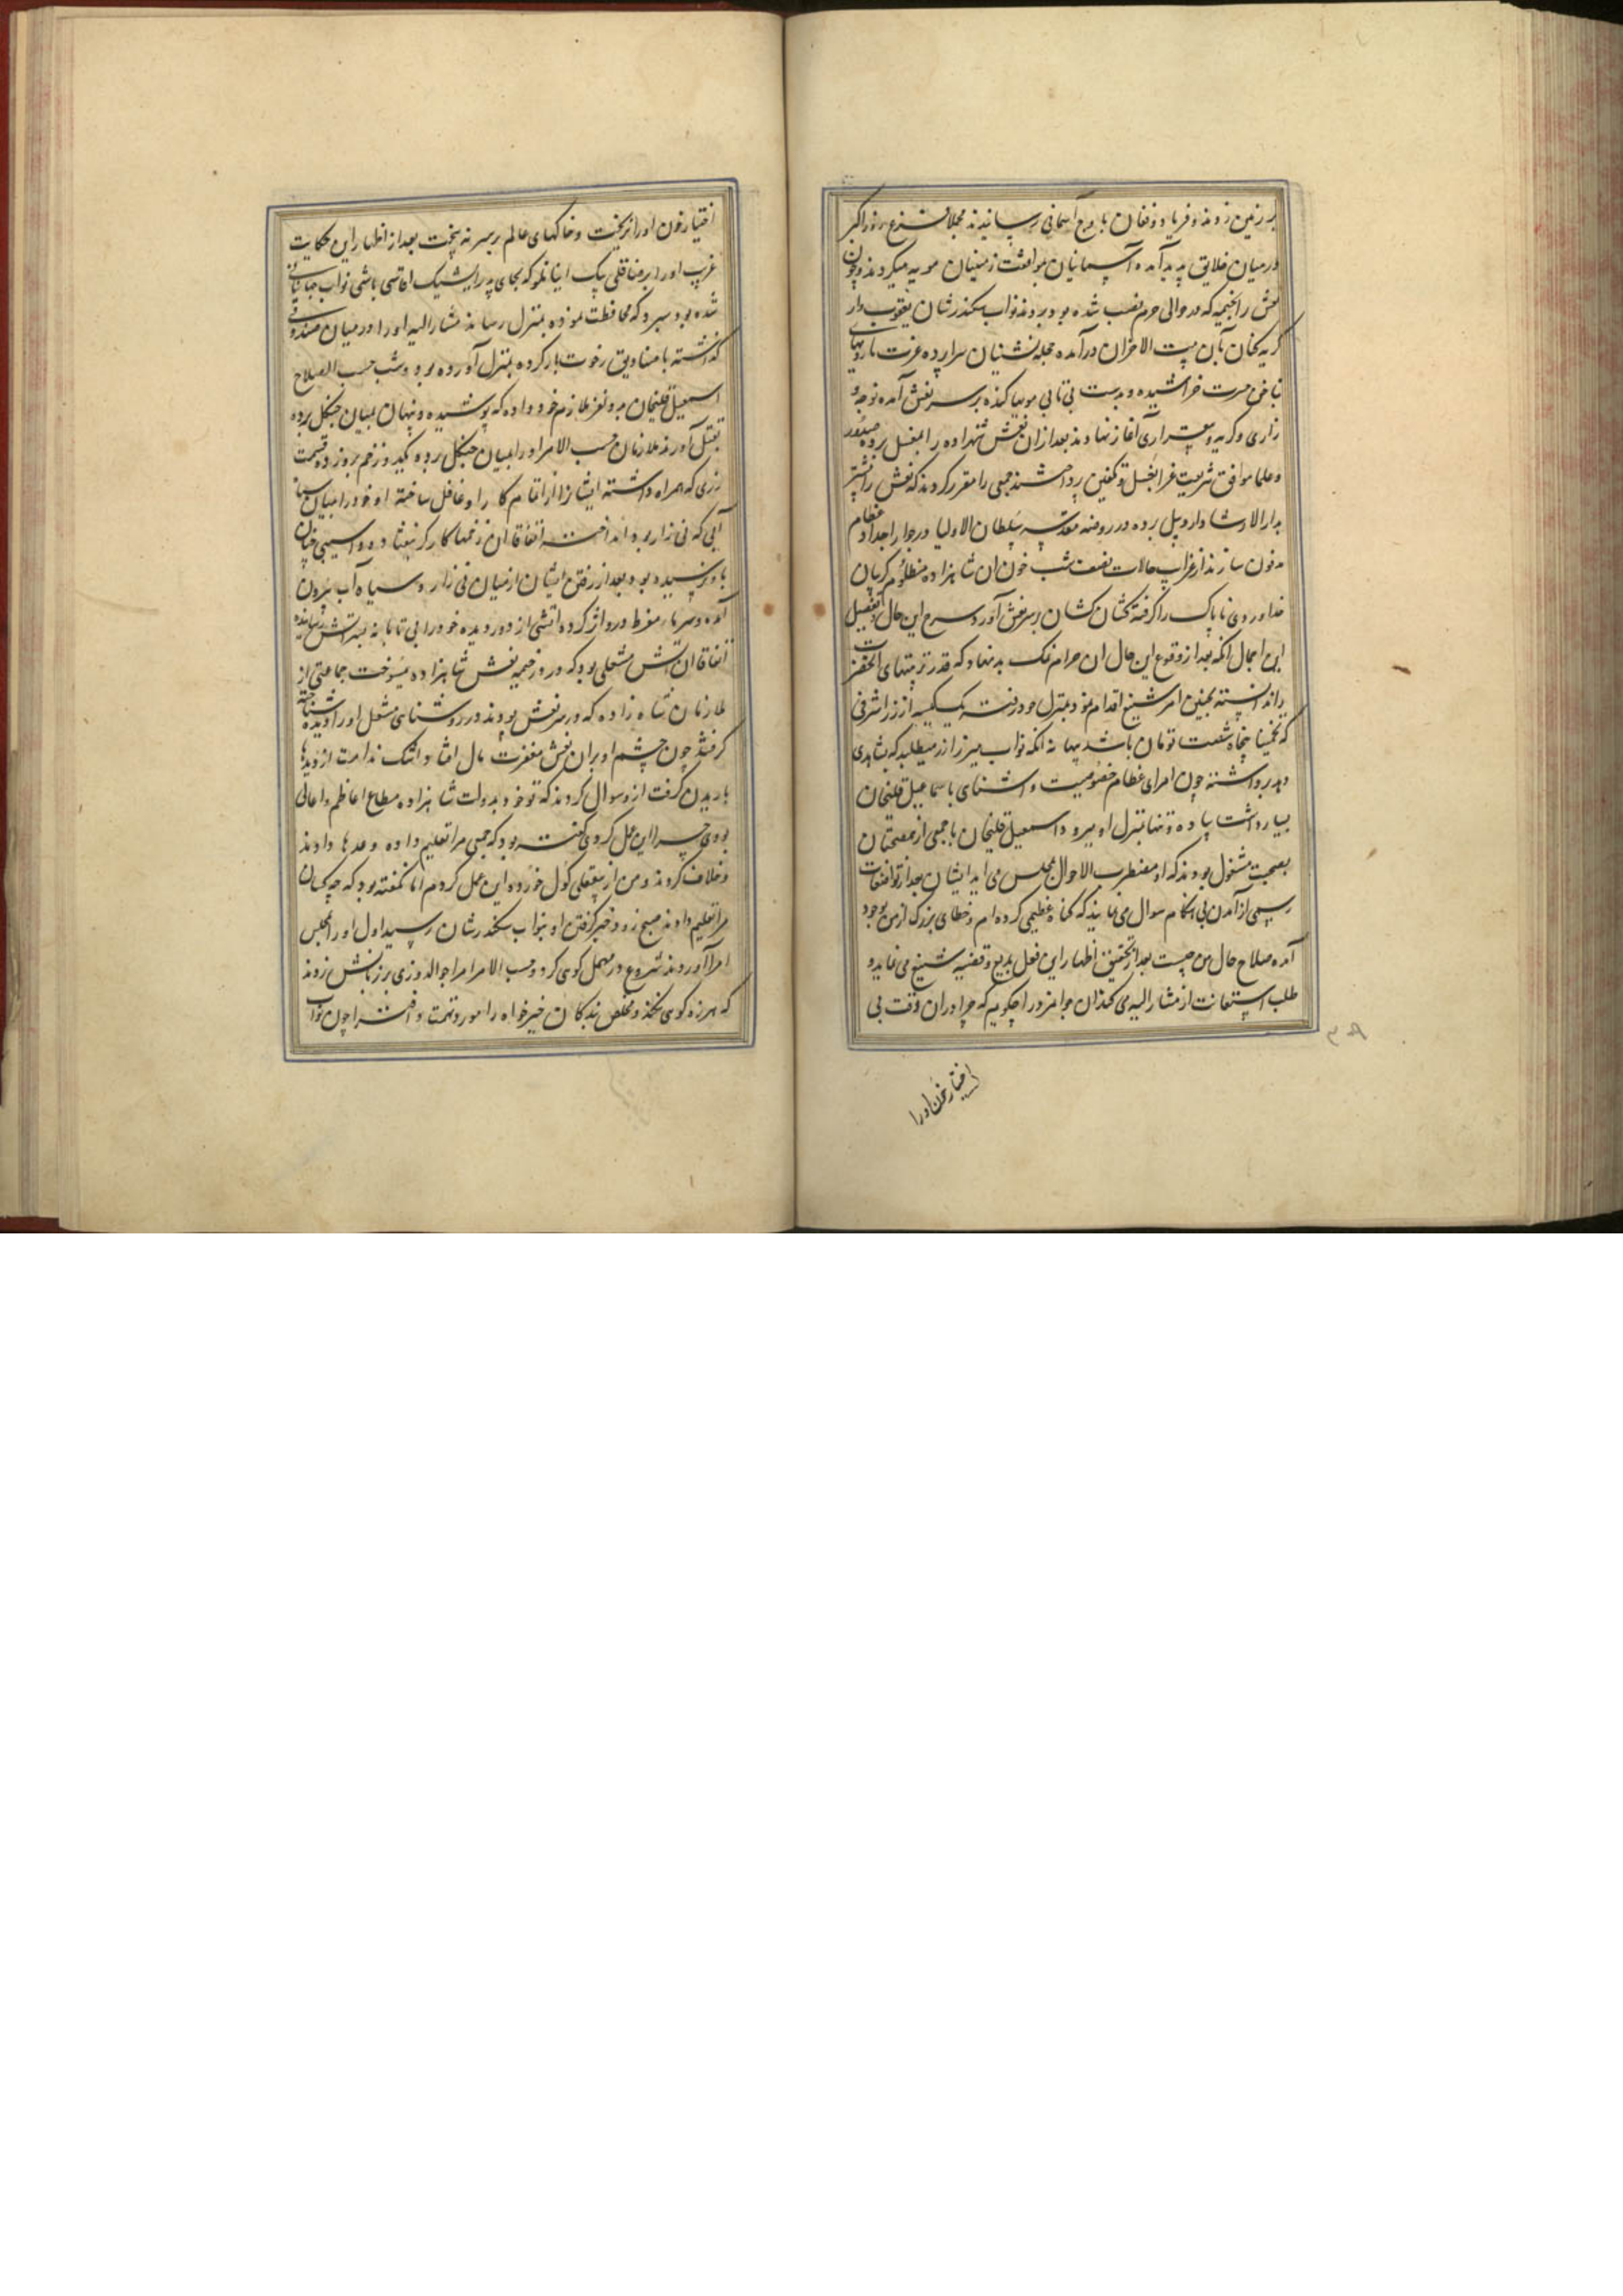 بر زمین زدند و فریاد و فغان باوج آسمانی رسانیدند مجملا فزع روز اکبر
در میان خلایق پدید آمد و آسمانیان بموافقت زمینیان مویه میکردند و چون
نعش را بخیمه که در حوالی حرم نصب شده بود بردند نواب سکندرشان یعقوب وار
گریه کنان بآن بیت الاحزان درآمده مجله نشینان سراپرده عزت با رویهای
بناخن حسرت خراشیده و بدست بی تابی مویها کنده بر سر نعش آمده نوحه و
زاری و گریه و بیقراری آغاز نهادند بعد از ان نعش شهزاده را بمغسل برده صدور
و علما موافق شریعت غرا بغسل و تکفین پرداختند جمعی را مقرر کردند که نعش را پیشتر
بدارالارشاد اردبیل برده در روضه مقدسه سلطان الاولیا در جوار اجداد عظام
مدفون سازند از غرایب حالات نصف شب خون ان شاهزاده مظلوم گریبان
خداوردی ناپاک را گرفته کشان کشان بر سر نعش آورد و شرح این حال و تفصیل
این اجمال انکه بعد از وقوع این حال ان حرام نمک بدنهاد که قدر تربیتهای انحضرت
را ندانسته بچنین امر شنیع اقدام نمود بمنزل خود رفته یک کیسه از زر اشرفی
که تخمینا پنجاه شصت تومان باشد ببهانه انکه نواب میرزا زر میطلبد که بشاهدی
دهد برداشته چون امرای عظام خصوصیت و اشنای با سماعیل قلیخان
بسیار داشت پیاده و تنها بمنزل او میرود اسمعیل قلیخان با جمعی از مصاحبان
بصحبت مشغول بودند که او مضطرب الاحوال بمجلس می اید ایشان بعد از تواضعات
رسمی از آمدن بی هنکام سوال می نمایند که کناه عظیمی کرده ام و خطای بزرک از من بوجود
آمده صلاح حال من چیست بعد از تحقیق اظهار این فعل بدیع و قضیه شنیع می نماید و
طلب استعانت از مشار الیه می کند ان جوانمرد را چکویم که چرا در ان وقت بی
اختیار خون او را
اختیار خون او را نریخت و خاکهای عالم بر سر نه بیخت بعد از اظهار این حکایت
غریب او را برضاقلی بیک اینانلو که بجای پدر ایشیک اقاسی باشی نواب جهانبانی
شده بود سپرد که محافظت نموده بمنزل رساند مشار الیه او را در میان صندوقی
گذاشته با صنادیق رخوت بار کرده بمنزل آورده بود و شب حسب الصلاح
اسمعیل قلیخان بدو نفر ملازم خود داده که پوشیده و پنهان بمیان جنکل برده
بقتل آورند ملازمان حسب الامر او را بمیان جنکل برده یکدو زخم برو زده قسمت
زری که همراه داشته ایشانرا از اتمام کار او غافل ساخته او خود را بمیان سیاه
آبی که نی زار بود انداخته اتفاقا ان زخمها کارکر نیفتاده و اسیبی چنان
باو نرسیده بود بعد از رفتن ایشان از میان نی زار و سیاه آب بیرون
آمده و سرما مفرط درو اثر کرده اتشی از دور دیده خود را بی تابانه بسر اتش رسانیده
اتفاقا ان اتش مشعلی بود که در دور خیمه نعش شاهزاده میسوخت جماعتی از
ملازمان شاه زاده که در سر نعش بودند در روشنای مشعل او را دیده شناخته
گرفتند چون چشم او بران نعش مغفرت مآل افتاد اشک ندامت از دیدها
باریدن گرفت ازو سوال کردند که تو خود بدولت شاهزاده مطاع اعاظم و اعالی
بودی چرا این عمل کردی گفته بود که جمعی مرا تعلیم داده وعدها دادند
و خلاف کردند و من از بیعقلی کول خورده این عمل کردم اما نکفته بود که چه کسان
مرا تعلیم دادند صبح زود خبر گرفتن او بنواب سکندرشان رسید اول او را بمجلس
امرا آوردند شروع در مهمل کوی کرد و حسب الامر امرا جوالدوزی بر زبانش زدند
که هرزه کوی نکند و مخلص بندکان خیرخواه را مورد تهمت و افترا چون نواب